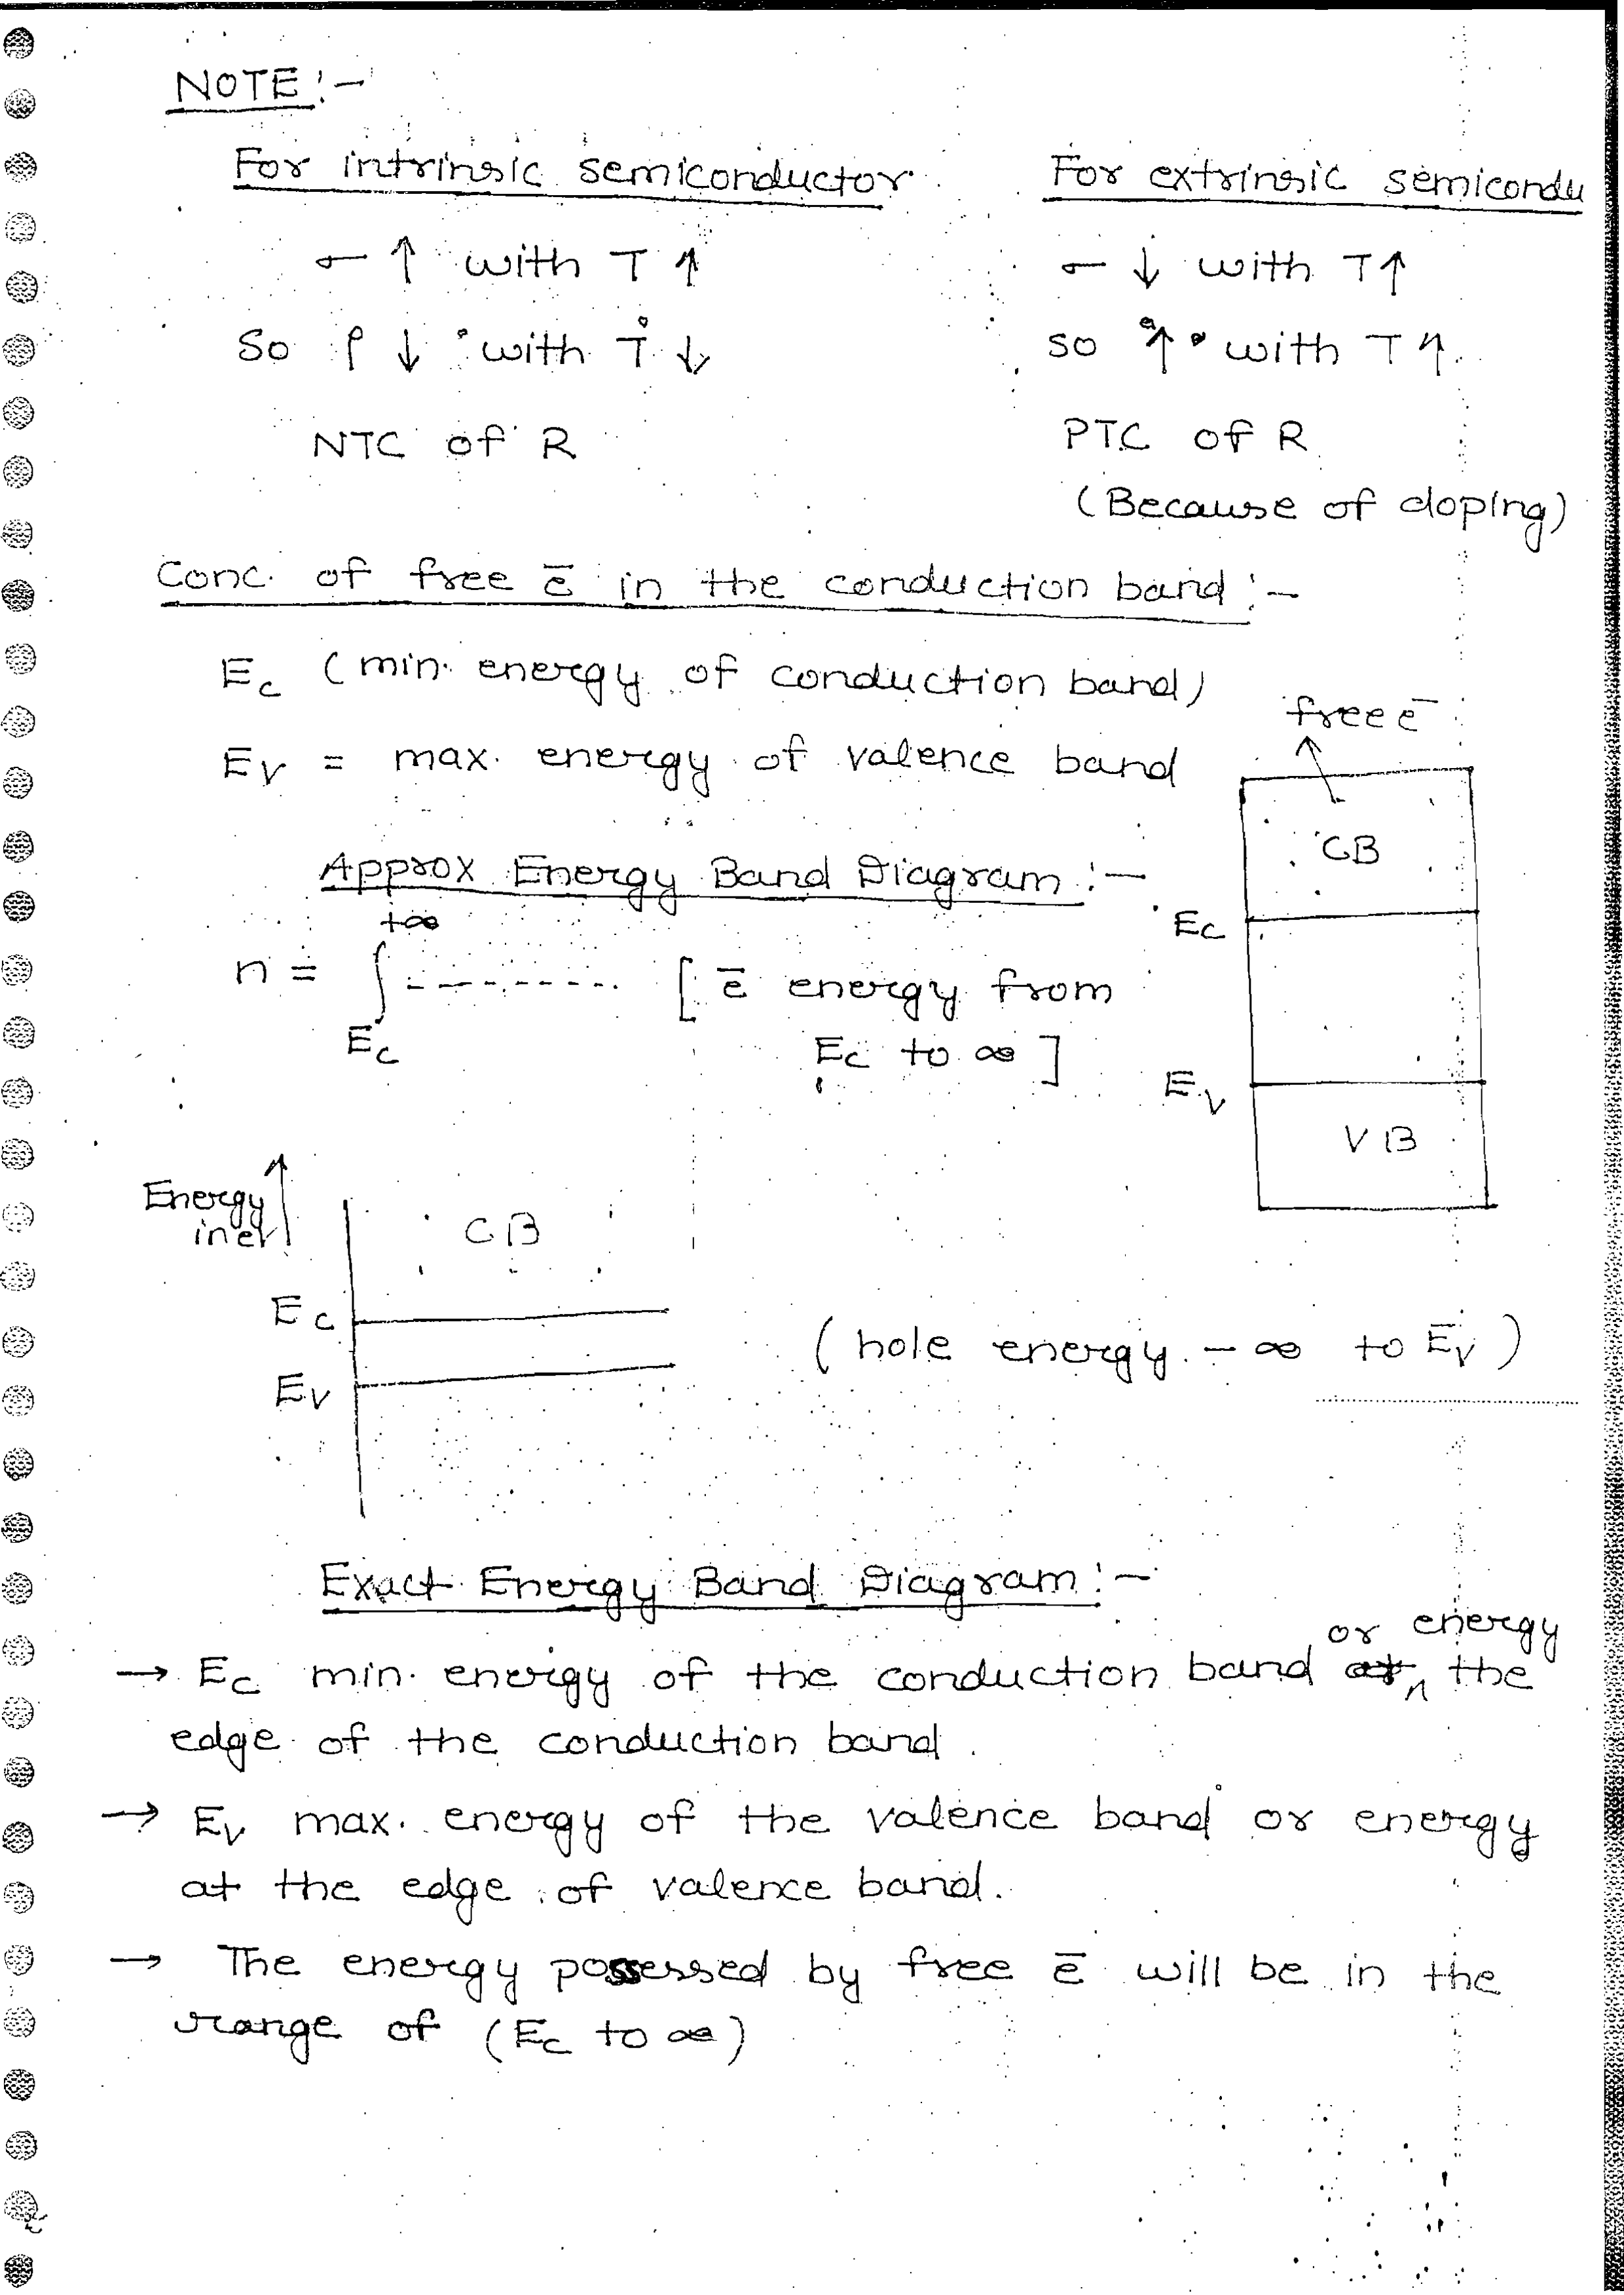 NOTE:-
For intrinsic semiconductor
For extrinsic semicondu
σ ↑ with T ↑
σ ↓ with T↑
So ρ ↓ with T ↓
so ↑ with T↑
NTC of R
PTC of R
(Because of doping)
Conc. of free e̅ in the conduction band:-
Ec (min. energy of conduction band)
free e̅
Ev = max. energy of valence band
CB
Approx Energy Band Diagram:-
Ec
+∞
n = ∫ --------- [ e̅ energy from
Ec
Ec to ∞ ]
Ev
VB
Energy
in eV
CB
Ec
(hole energy - ∞ to Ev)
Ev
Exact Energy Band Diagram:-
or energy
→ Ec min. energy of the conduction band at the
edge of the conduction band.
→ Ev max. energy of the valence band or energy
at the edge of valence band.
→ The energy possessed by free e̅ will be in the
range of (Ec to ∞)